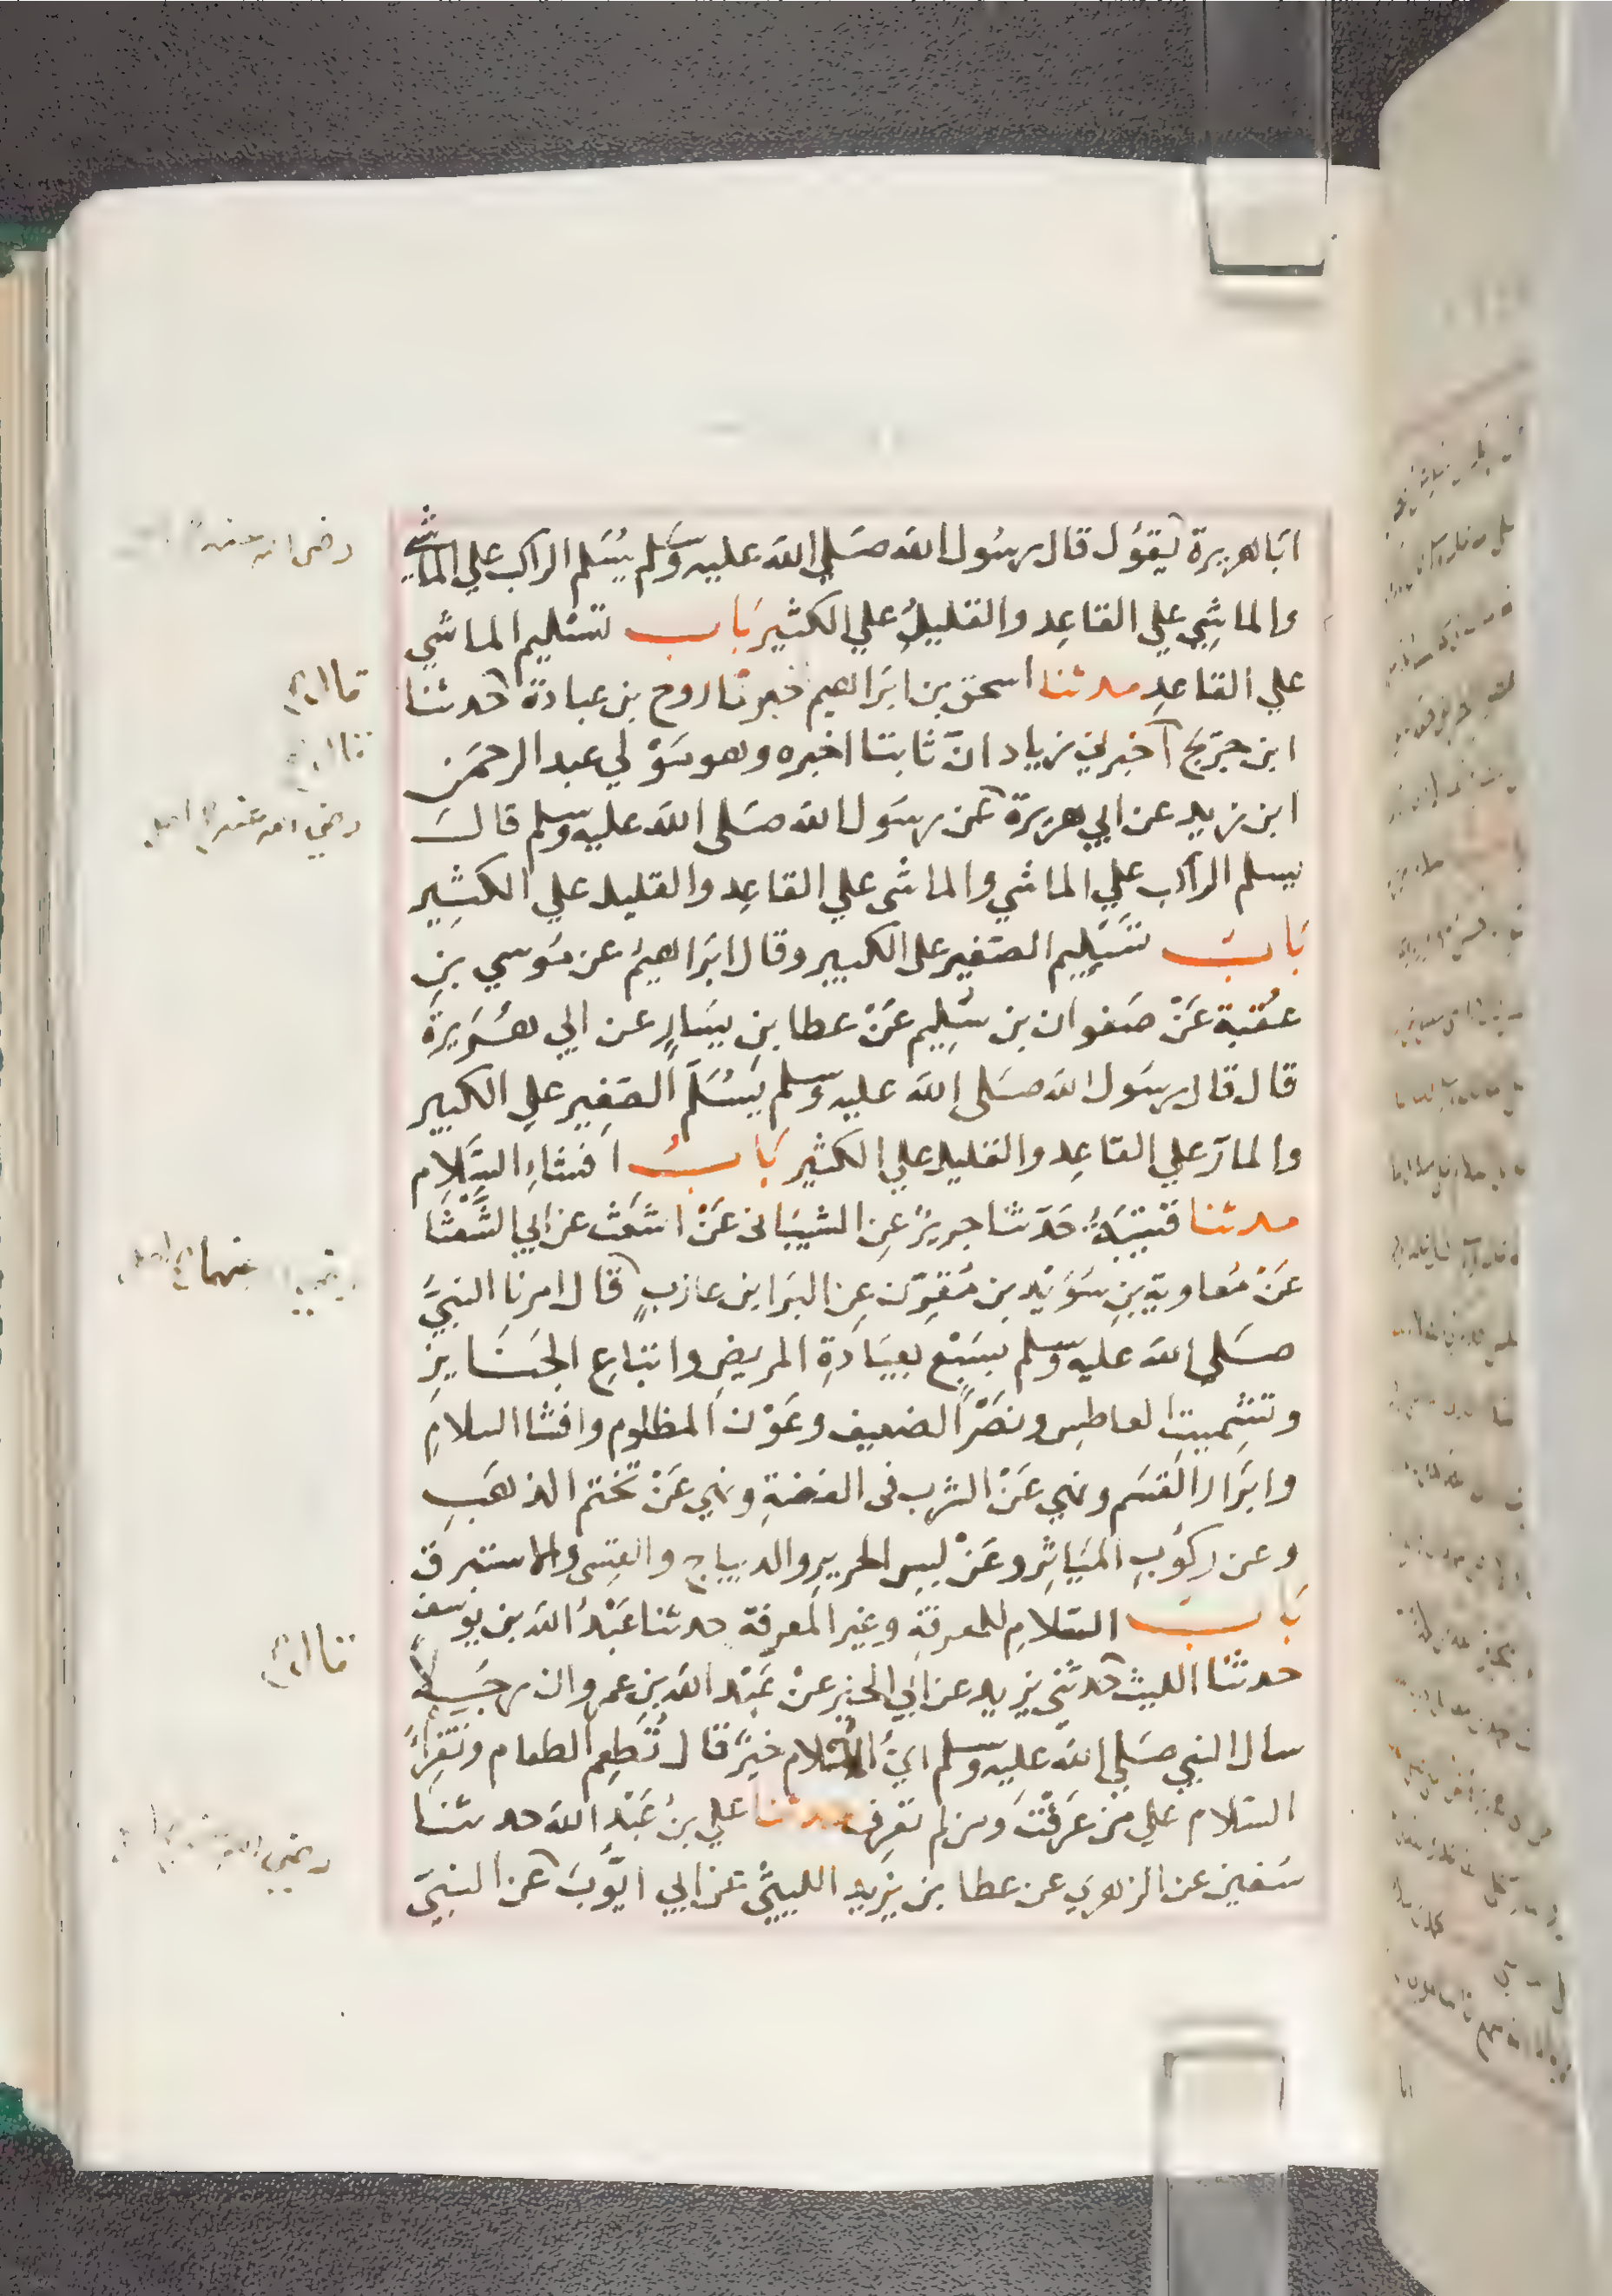 ابا هريرة يقول قال رسول الله صلى الله عليه وسلم يسلم الراكب علي الماشي
والماشي علي القاعد والقليل علي الكثير باب تسليم الماشي
علي القاعد حدثنا اسحق بن ابراهيم اخبرنا روح بن عبادة حدثنا
ابن جريج اخبرني زياد ان ثابتا اخبره وهو مولي عبد الرحمن
ابن زيد عن ابي هريرة عن رسول الله صلى الله عليه وسلم قال
يسلم الراكب علي الماشي والماشي علي القاعد والقليل علي الكثير
باب تسليم الصغير على الكبير وقال ابراهيم عن موسي بن
عقبة عن صفوان بن سليم عن عطا بن يسار عن ابي هريرة
قال قال رسول الله صلى الله عليه وسلم يسلم الصغير علي الكبير
والمار علي القاعد والقليل علي الكثير باب افشاء السلام
حدثنا قتيبة حدثنا جرير عن الشيباني عن اشعث عن ابي الشعثا
عن معاوية بن سويد بن مقرن عن البرا بن عازب قال امرنا النبي
صلى الله عليه وسلم بسبع بعيادة المريض واتباع الجنايز
وتشميت العاطس ونصر الضعيف وعون المظلوم وافشا السلام
وابرار القسم ونهي عن الشرب في الفضة ونهي عن تختم الذهب
وعن ركوب المياثر وعن لبس الحرير والديباج والقسي والاستبرق
باب السلام للمعرفة وغير المعرفة حدثنا عبد الله بن يوسف
حدثنا الليث حدثني يزيد عن ابي الخير عن عبد الله بن عمرو ان رجلا
سال النبي صلي الله عليه وسلم اي الاسلام خير قال تطعم الطعام وتقرا
السلام علي من عرفت ومن لم تعرف حدثنا علي بن عبد الله حدثنا
سفين عن الزهري عن عطا بن يزيد الليثي عن ابي ايوب عن النبي